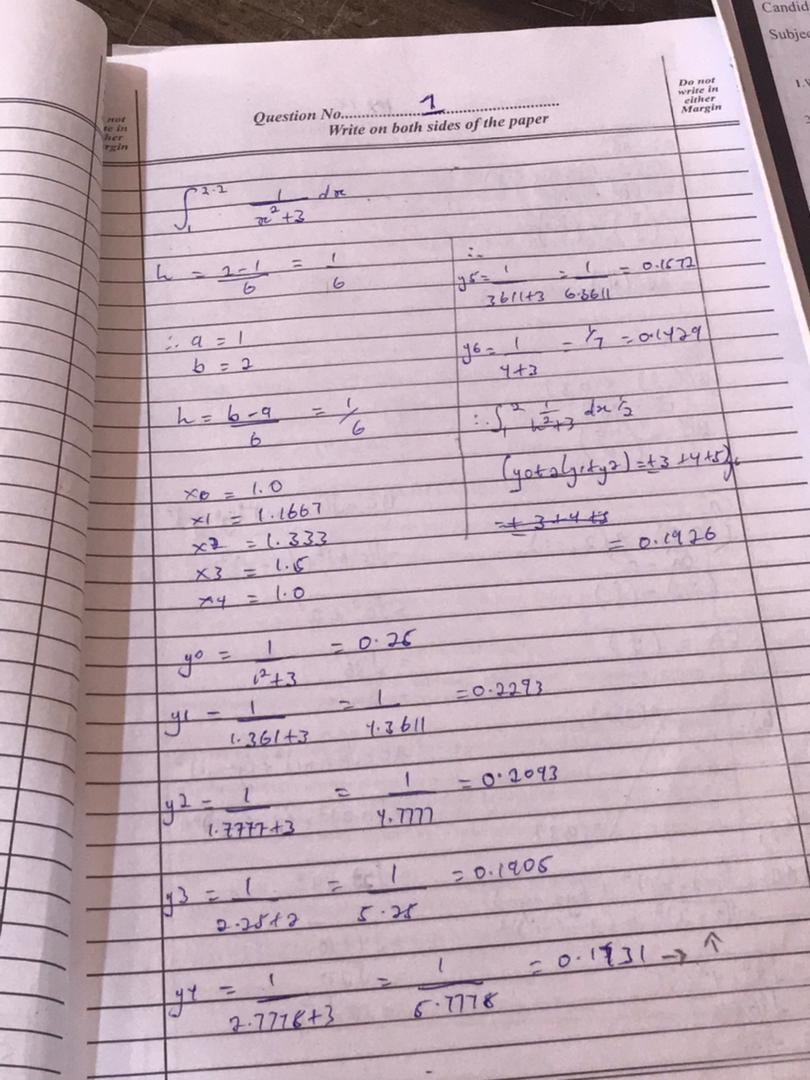 Candid
Subjec
1.
not
te in
her
rgin
Question No. 1
Write on both sides of the paper
Do not
write in
either
Margin
∫₁^2.2 1/(x²+3) dx
h = (2-1)/6 = 1/6
∴ a = 1
b = 2
h = (b-a)/6 = 1/6
x0 = 1.0
x1 = 1.1667
x2 = 1.333
x3 = 1.5
x4 = 1.0
y0 = 1/(1²+3) = 0.25
y1 = 1/(1.361+3) = 1/4.3611 = 0.2293
y2 = 1/(1.7777+3) = 1/4.7777 = 0.2093
y3 = 1/(2.25+2) = 1/5.25 = 0.1905
y4 = 1/(2.7778+3) = 1/5.7778 = 0.1731 → ↑
∴
y5 = 1/(3611+3) = 1/6.3611 = 0.1572
y6 = 1/(4+3) = 1/7 = 0.1429
∴ ∫₁² 1/(h²+3) dx ½
(y0+2(y1+y2) = +3+4+5)
= +3+4+5
= 0.1926